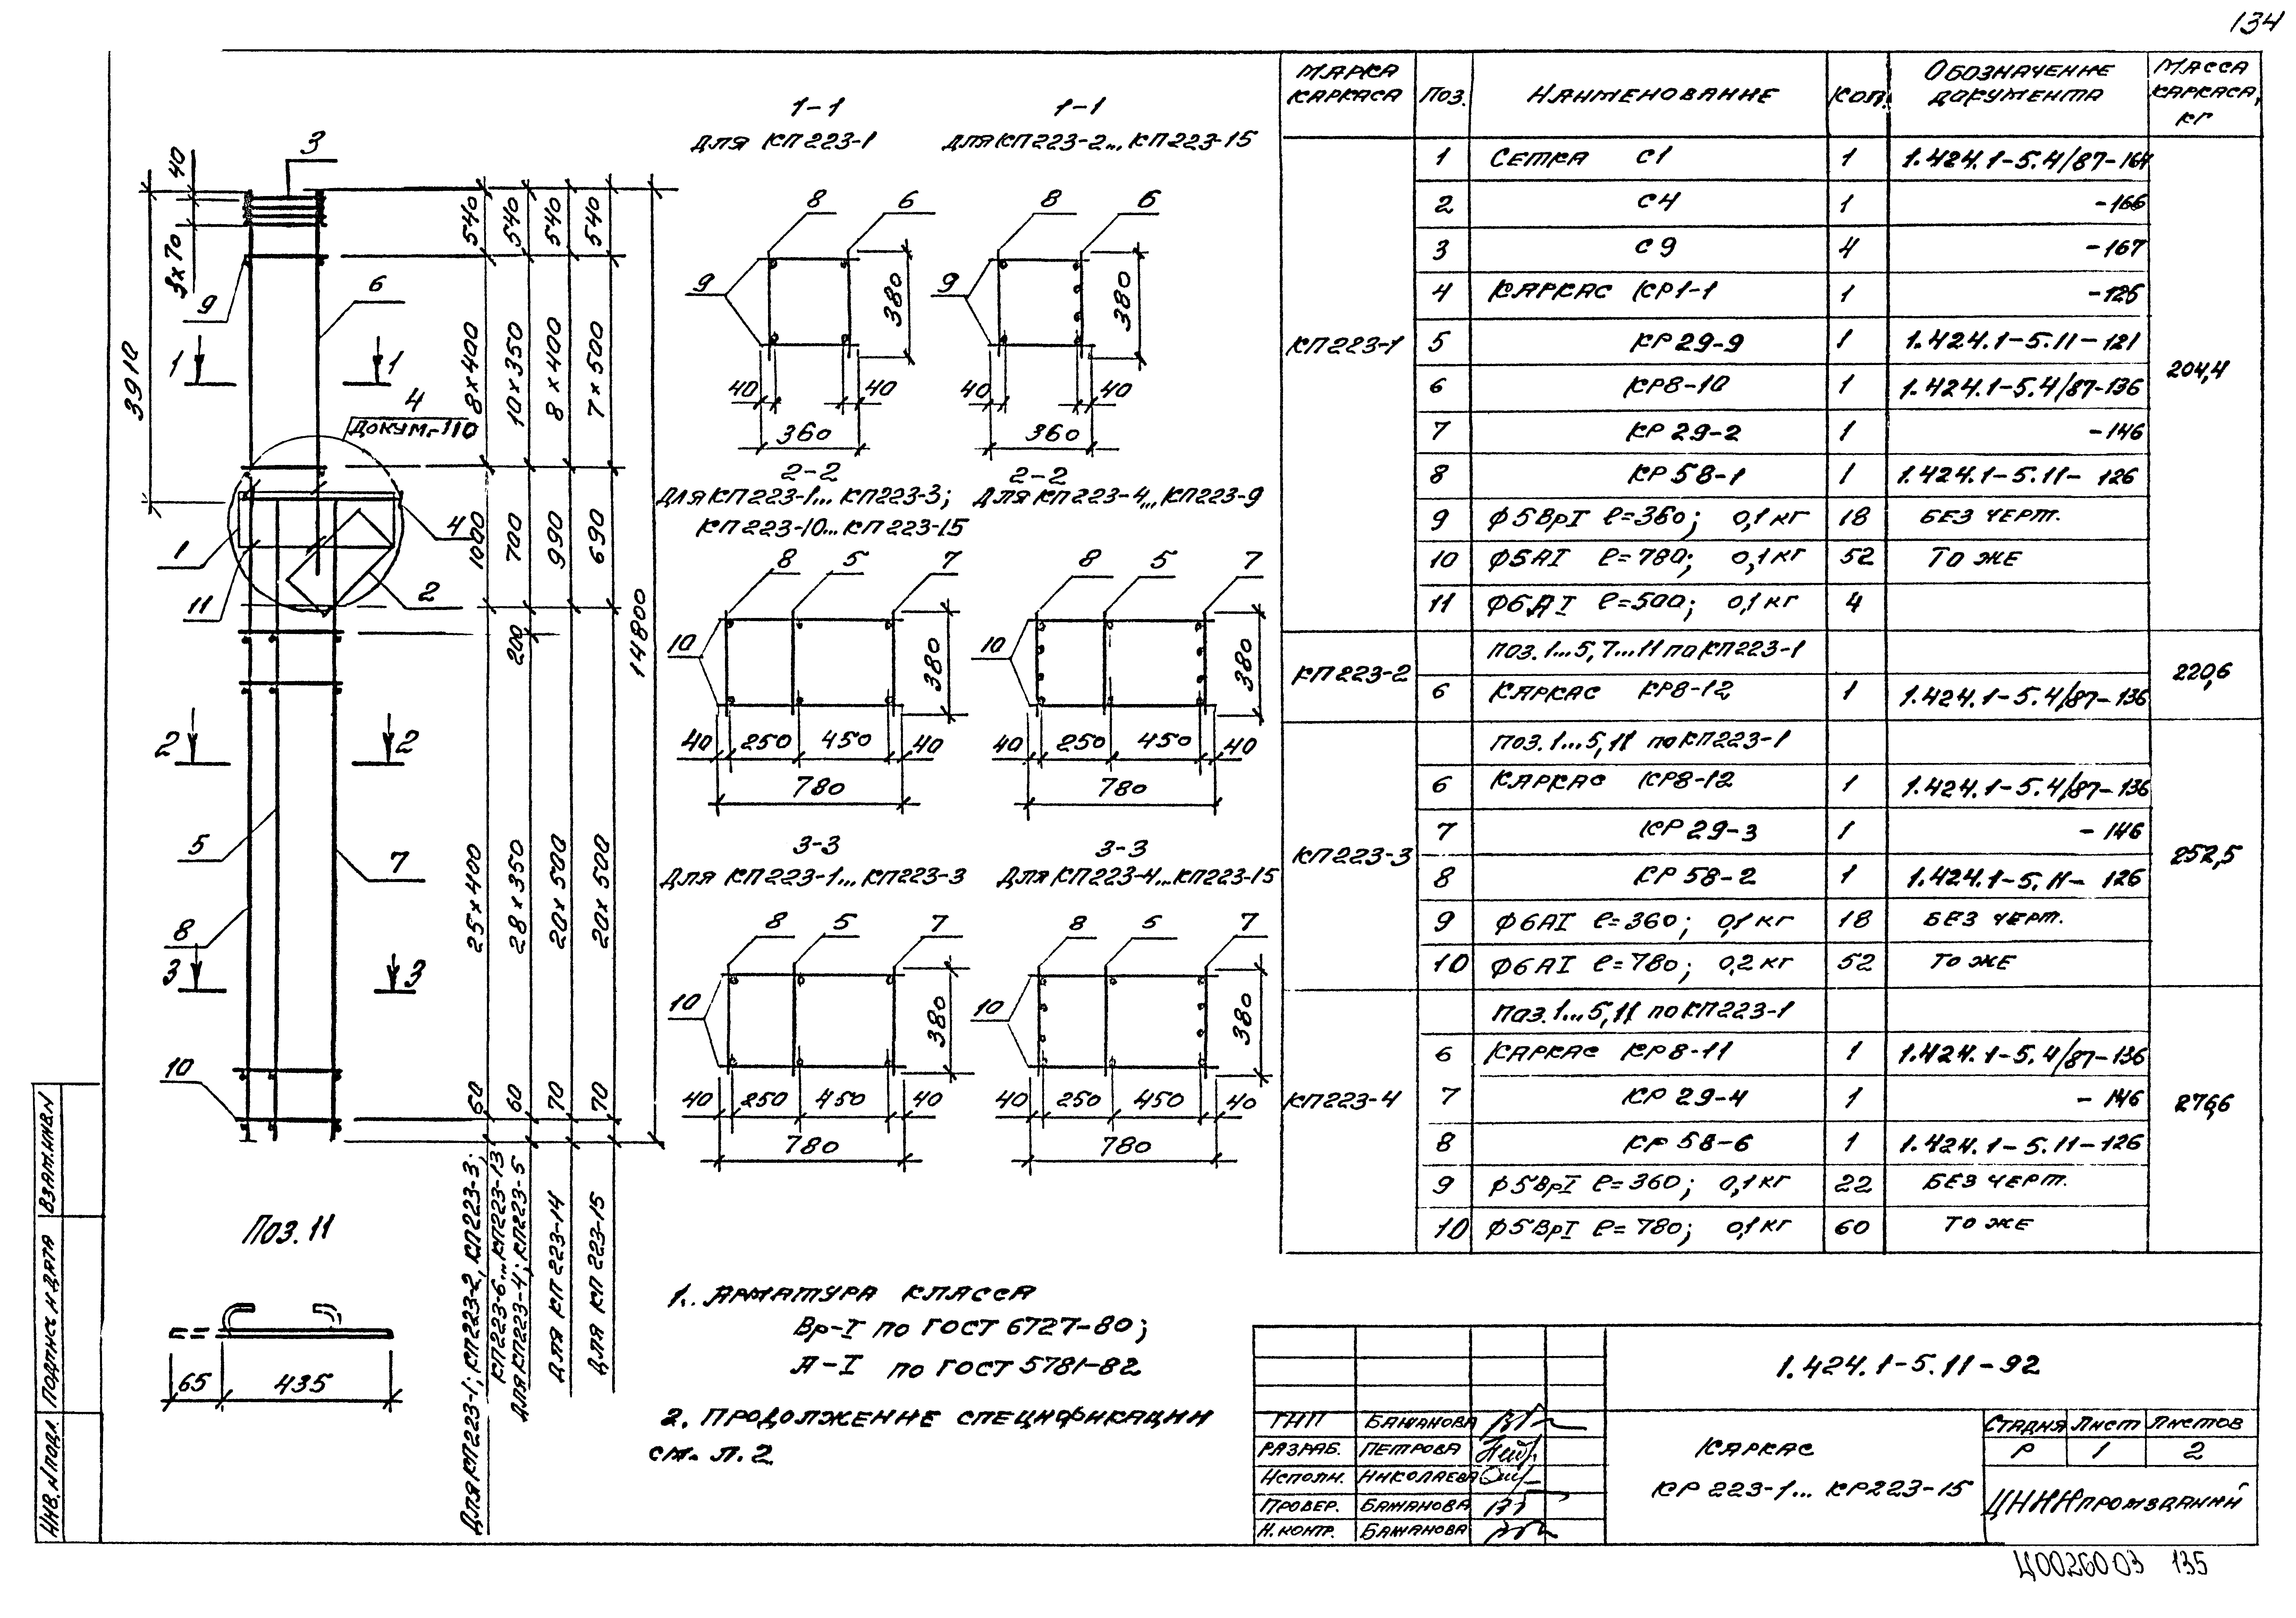 134
40
3
3×70
3910
9
6
1
1
4
ДОКУМ.-110
1
4
2
11
2
2
5
7
8
3
3
10
540
540
540
540
8×400
10×350
8×400
7×500
1000
700
990
690
200
14800
25×400
28×350
20×500
20×500
60
60
70
70
ДЛЯ КП223-1; КП223-2, КП223-3;
КП223-6...КП223-13
ДЛЯ КП223-4; КП223-5
ДЛЯ КП 223-14
ДЛЯ КП 223-15
1-1
ДЛЯ КП223-1
8
6
9
380
40
40
360
1-1
ДЛЯ КП223-2... КП223-15
8
6
9
380
40
40
360
2-2
ДЛЯ КП223-1... КП223-3;
КП223-10... КП223-15
8
5
7
10
380
40
250
450
40
780
2-2
ДЛЯ КП223-4...КП223-9
8
5
7
10
380
40
250
450
40
780
3-3
ДЛЯ КП223-1... КП223-3
8
5
7
10
380
40
250
450
40
780
3-3
ДЛЯ КП223-4...КП223-15
8
5
7
10
380
40
250
450
40
780
ПОЗ. 11
65
435
1. АРМАТУРА КЛАССА
Вр-I ПО ГОСТ 6727-80;
А-I ПО ГОСТ 5781-82
2. ПРОДОЛЖЕНИЕ СПЕЦИФИКАЦИИ
СМ. Л. 2
МАРКА КАРКАСА ПОЗ. НАИМЕНОВАНИЕ КОЛ. ОБОЗНАЧЕНИЕ ДОКУМЕНТА МАССА КАРКАСА, КГ
КП223-1 204,4
1 СЕТКА С1 1 1.424.1-5.4/87-164
2 С4 1 -166
3 С9 4 -167
4 КАРКАС КР1-1 1 -125
5 КР29-9 1 1.424.1-5.11-121
6 КР8-10 1 1.424.1-5.4/87-136
7 КР29-2 1 -146
8 КР58-1 1 1.424.1-5.11-126
9 Ф5ВрI ℓ=360; 0,1 КГ 18 БЕЗ ЧЕРТ.
10 Ф5АI ℓ=780; 0,1 КГ 52 ТО ЖЕ
11 Ф6АI ℓ=500; 0,1 КГ 4
КП223-2 220,6
ПОЗ. 1...5, 7...11 ПО КП223-1
6 КАРКАС КР8-12 1 1.424.1-5.4/87-136
КП223-3 252,5
ПОЗ. 1...5, 11 ПО КП223-1
6 КАРКАС КР8-12 1 1.424.1-5.4/87-136
7 КР29-3 1 -146
8 КР58-2 1 1.424.1-5.11-126
9 Ф6АI ℓ=360; 0,1 КГ 18 БЕЗ ЧЕРТ.
10 Ф6АI ℓ=780; 0,2 КГ 52 ТО ЖЕ
КП223-4 276,6
ПОЗ. 1...5, 11 ПО КП223-1
6 КАРКАС КР8-11 1 1.424.1-5.4/87-136
7 КР29-4 1 -146
8 КР58-6 1 1.424.1-5.11-126
9 Ф5ВрI ℓ=360; 0,1 КГ 22 БЕЗ ЧЕРТ.
10 Ф5ВрI ℓ=780; 0,1 КГ 60 ТО ЖЕ
1.424.1-5.11-92
ГИП БАЖАНОВА
РАЗРАБ. ПЕТРОВА
ИСПОЛН. НИКОЛАЕВА
ПРОВЕР. БАЖАНОВА
Н.КОНТР. БАЖАНОВА
КАРКАС
КР 223-1... КР223-15
СТАДИЯ ЛИСТ ЛИСТОВ
Р 1 2
ЦНИИПРОМЗДАНИЙ
ИНВ.№ПОДЛ. ПОДПИСЬ И ДАТА ВЗАМ.ИНВ.№
Ц00260 03 135